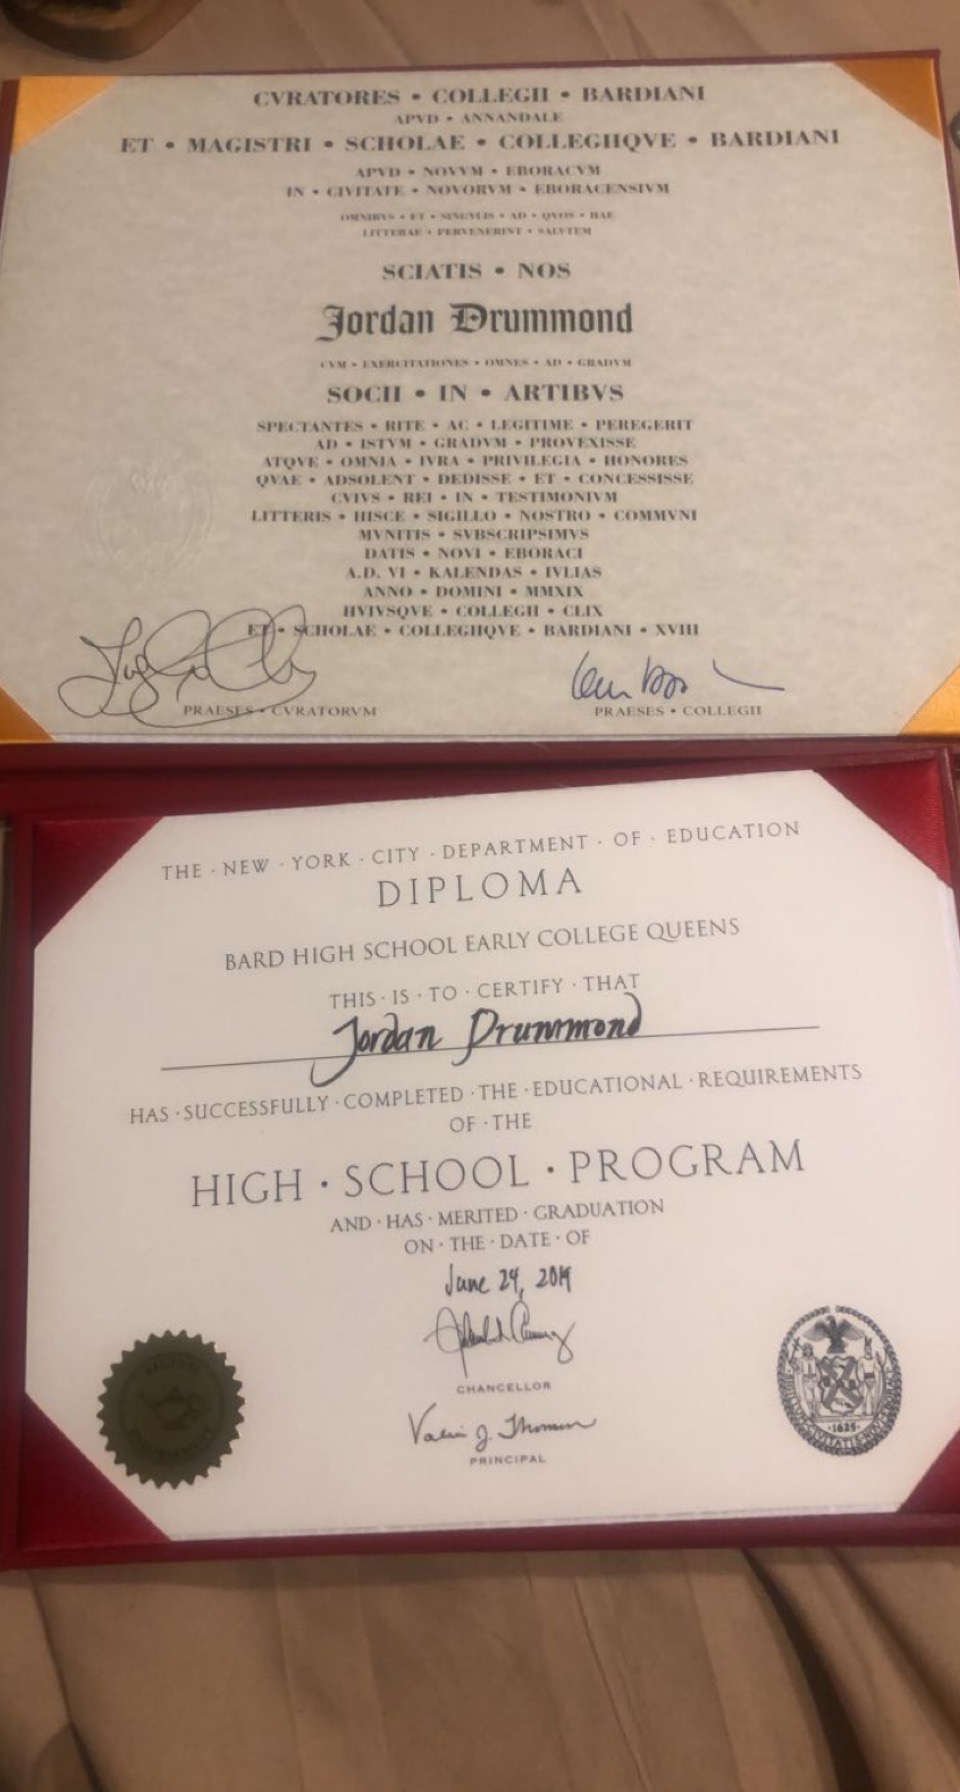 CVRATORES • COLLEGII • BARDIANI
APVD • ANNANDALE
ET • MAGISTRI • SCHOLAE • COLLEGIIQVE • BARDIANI
APVD • NOVVM • EBORACVM
IN • CIVITATE • NOVORVM • EBORACENSIVM
OMNIBVS • ET • SINGVLIS • AD • QVOS • HAE
LITTERAE • PERVENERINT • SALVTEM
SCIATIS • NOS
Jordan Drummond
CVM • EXERCITATIONES • OMNES • AD • GRADVM
SOCII • IN • ARTIBVS
SPECTANTES • RITE • AC • LEGITIME • PEREGERIT
AD • ISTVM • GRADVM • PROVEXISSE
ATQVE • OMNIA • IVRA • PRIVILEGIA • HONORES
QVAE • ADSOLENT • DEDISSE • ET • CONCESSISSE
CVIVS • REI • IN • TESTIMONIVM
LITTERIS • HISCE • SIGILLO • NOSTRO • COMMVNI
MVNITIS • SVBSCRIPSIMVS
DATIS • NOVI • EBORACI
A.D. VI • KALENDAS • IVLIAS
ANNO • DOMINI • MMXIX
HVIVSQVE • COLLEGII • CLIX
ET • SCHOLAE • COLLEGIIQVE • BARDIANI • XVIII
PRAESES • CVRATORVM
PRAESES • COLLEGII
THE · NEW · YORK · CITY · DEPARTMENT · OF · EDUCATION
DIPLOMA
BARD HIGH SCHOOL EARLY COLLEGE QUEENS
THIS · IS · TO · CERTIFY · THAT
Jordan Drummond
HAS · SUCCESSFULLY · COMPLETED · THE · EDUCATIONAL · REQUIREMENTS
OF · THE
HIGH · SCHOOL · PROGRAM
AND · HAS · MERITED · GRADUATION
ON · THE · DATE · OF
June 24, 2019
CHANCELLOR
Valerie J. Thomson
PRINCIPAL
·1625·